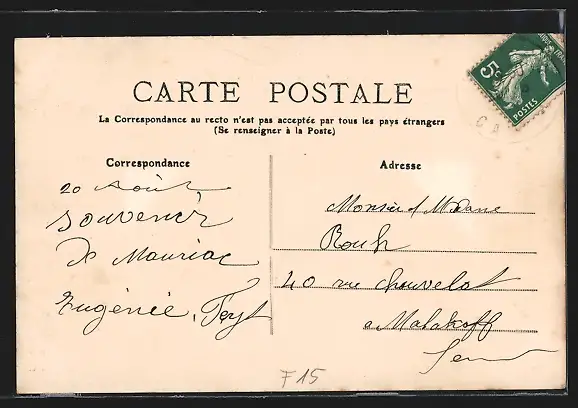 CARTE POSTALE
La Correspondance au recto n'est pas acceptée par tous les pays étrangers
(Se renseigner à la Poste)
Correspondance
20 Août
Souvenir
De Mauriac
Eugénie, Feyt
Adresse
Monsieu et Madame
Rouh
40 rue Chauvelot
a Malakoff
Seine
5c
POSTES
F15